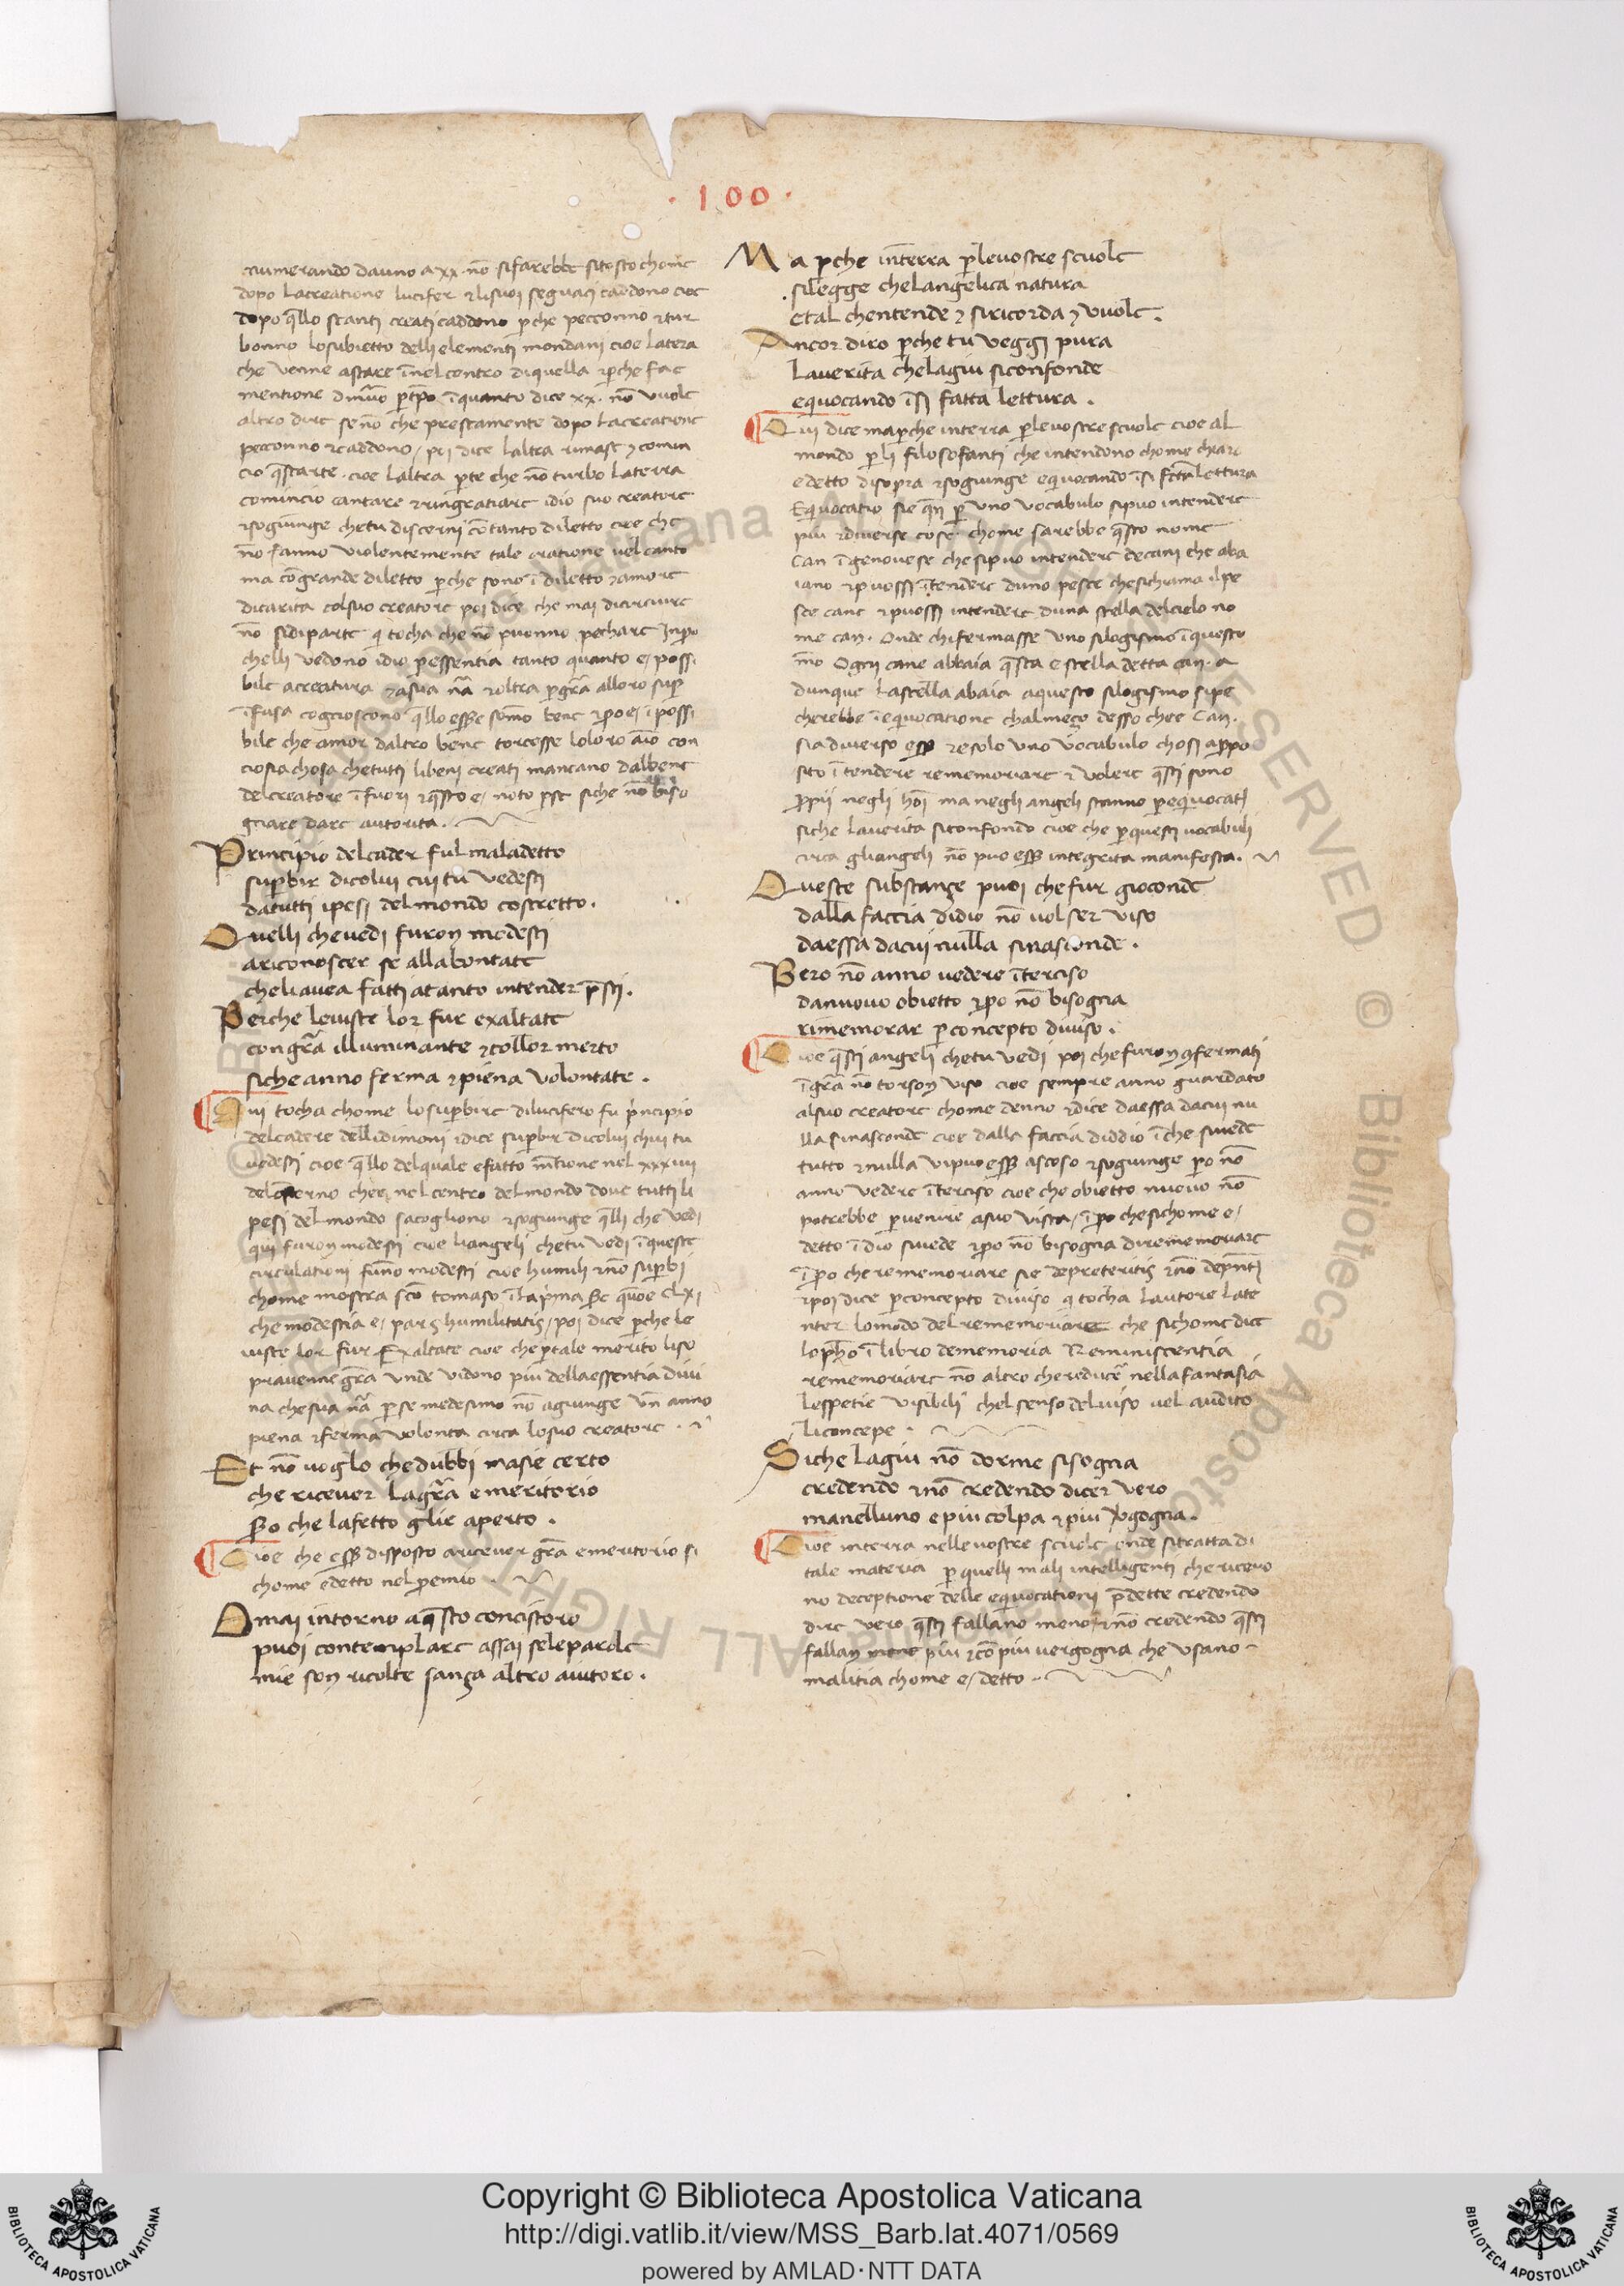 · 100 ·
numerando dauno a xx. nō sifarebbe sitosto chome
dopo lacreatione lucifer ⁊ lisuoi seguaci caddono cioe
dopo q̄llo stanti creati caddono p̄che pecconno ⁊ tur
bonno losubietto delli elementi mondani cioe latera
che venne astare ī nel centro diquella ⁊ p̄che fac
mentione ī quanto dice xx. nō vuole
altro dire se nō che prestamente dopo lacreatione
pecconno ⁊ caddono / poi dice laltra rimase ⁊ comin
cio q̄starte. cioe laltra p̄te che nō turbo laterra
comincio cantare ⁊ ringratiare idio suo creatore
⁊ sogiunge chetu discerni cōtanto diletto cioe che
nō fanno violentemente tale oratione vel canto
ma cōgrande diletto p̄che sono ī diletto ⁊ amore
dicarita colsuo creatore poi dice che mai dicirciure
nō sidiparte q̄ tocha che nō puonno pechare Inpo
chelli vedono idio p̄essentia tanto quanto e / possi
bile acreatura ⁊ asua nā ⁊ oltra p̄ grā alloro sup̄
īfusa cogcioscono q̄llo esse sōmo bene ⁊ po e / ī possi
bile che amor daltro bene torcesse loloro aīo con
ciosia chosa chetutti libeni creati mancano dalbene
delcreatore ī fuori ⁊ q̄sto e / noto p̄ se siche nō biso
gnare dare autorita.
Principio delcader ful maladetto
sup̄bir dicolui cui tu vedesti
datutti ipesi del mondo costretto.
Quelli chevedi furon modesti
ariconoscer se allabontate
cheliavea fatti atanto intender p̄sti.
Perche leviste lor fur exaltate
congrā illuminante ⁊ collor merto
siche anno ferma ⁊ piena volontate.
Qui tocha chome losup̄bire dilucifero fu p̄ncipio
delcadere dellidimoni ⁊ dice sup̄bir dicolui chui tu
vedesti cioe q̄llo delquale efatto mētione nel xxxiiii
chee nel centro delmondo dove tutti li
pesi del mondo sacogliono ⁊ sogiunge q̄lli che vedi
qui furon modesti cioe liangeli chetu vedi ī queste
circulationi funno modesti cioe humili ⁊ nō sup̄bi
chome mostra scō tomaso ī lap̄ma
che modestia e / pars humilitatis / poi dice p̄che le
viste lor fur Exaltate cioe che p̄ tale merito liso
pravenne grā unde vidono piu dellaessentia divi
na chesua nā p̄ se medesimo nō agiunge vn̄ anno
piena ⁊ ferma volonta circa losuo creatore.
Et nō voglo chedubbi masie certo
che ricever lagrā emeritorio
che lafetto glie aperto.
Cioe che esse disposto aricever grā emeritorio si
chome edetto nelp̄emio.
Omai intorno aq̄sto concistoro
puoi contemplare assai seleparole
mie son ricolte sanza altro aiutoro.
Ma p̄che interra p̄levostre scuole
silegge chelangelica natura
etal chentende ⁊ siricorda ⁊ vuole.
Ancor diro p̄che tu veggi pura
laverita chelagiu siconfonde
equocando īsi fatta lettura.
Qui dice map̄che interra p̄levostre scuole cioe al
mondo p̄li filosofanti che intendono chome chiaro
edetto disopra ⁊ sogiunge equivocando īsi fcta lettura
Equivocatio sie qn̄ p̄ uno vocabulo sipuo intendere
piu ⁊ diverse cose. chome sarebbe q̄sto nome
Can ī genovese che sipuo intendere decani che aba
iano ⁊ puossi ītendere duno pesce chesichiama ilpe
sce cane ⁊ puossi intendere duna stella delcielo no
me can. Onde chifermasse uno silogismo ī questo
mō Ogni cane abbaia q̄sta e stella detta can. a
dunque lastella abaia aquesto silogismo sipe
cherebbe ī equivocatione chalmezo desso chee Can.
sia diverso esse ⁊ esolo uno vocabulo chosi appo
sito ītendere rememorare ⁊ volere q̄sti sono
p̄pii negli hōi ma negli angeli stanno p̄equivocati
siche laverita siconfondo cioe che p̄ questi vocabuli
circa gliangeli nō puo esse integrita manifesta.
Queste substanze puoi chefur gioconde
dalla faccia didio nō volser viso
daessa dacui nulla sinasconde.
Pero nō anno vedere īterciso
danuovo obietto ⁊ po nō bisogna
rimemorar p̄ concepto diviso.
Cioe q̄sti angeli chetu vedi poi chefuron ꝯfermati
ī grā nō torson viso cioe sempre anno guardato
alsuo creatore chome denno ⁊ dice daessa dacui nu
lla sinasconde cioe dalla faccia diddio ī che sivede
tutto ⁊ nulla vipuo esse ascoso ⁊ sogiunge po nō
anno vedere īterciso cioe che obietto nuovo nō
potrebbe p̄venire asuo vista / ī po chesichome e /
detto ī dio sivede ⁊ po nō bisogna direnemoriare
ī po che rememoriare sie depreteritis ⁊ nō
⁊ poi dice p̄concepto diviso q̄ tocha lautore late
nter lomodo del rememoriare che sichome dice
loph̄o ī libro dememoria Reminiscentia
rememoriare nō altro che reducere nella fantasia
lespetie visibili chel senso delviso vel audito
liconcepe.
Siche lagiu nō dorme sisogna
credendo ⁊ nō credendo dicer vero
manelluno e piu colpa ⁊ piu v̄gogna.
Cioe interra nellevostre scuole onde sitratta di
tale materia p̄ quelli mali intelligenti che ricevo
no deceptione delle equivocationi p̄dette credendo
dire vero q̄sti fallano meno ⁊ nō credendo q̄sti
fallan piu ⁊ cō piu vergogna che usano
malitia chome e / detto.
Copyright © Biblioteca Apostolica Vaticana
http://digi.vatlib.it/view/MSS_Barb.lat.4071/0569
powered by AMLAD·NTT DATA
BIBLIOTECA APOSTOLICA VATICANA
BIBLIOTECA APOSTOLICA VATICANA